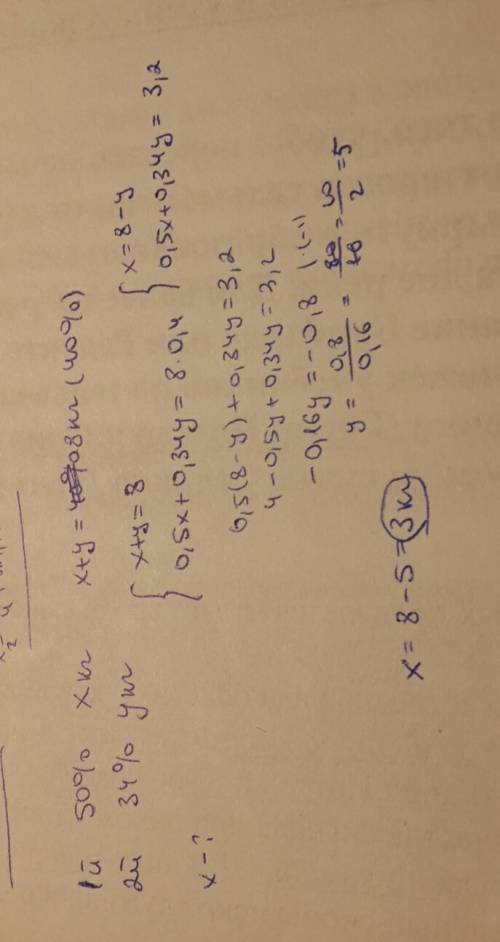 1й 50% x кг x+y = 8 кг (40%)
2й 34% y кг
x - ?
{ x+y = 8
0,5x+0,34y = 8·0,4
{ x = 8-y
0,5x+0,34y = 3,2
0,5(8-y)+0,34y = 3,2
4-0,5y+0,34y = 3,2
-0,16y = -0,8 |·(-1)
y = 0,8/0,16 = 80/16 = 10/2 = 5
x = 8-5 = 3кг